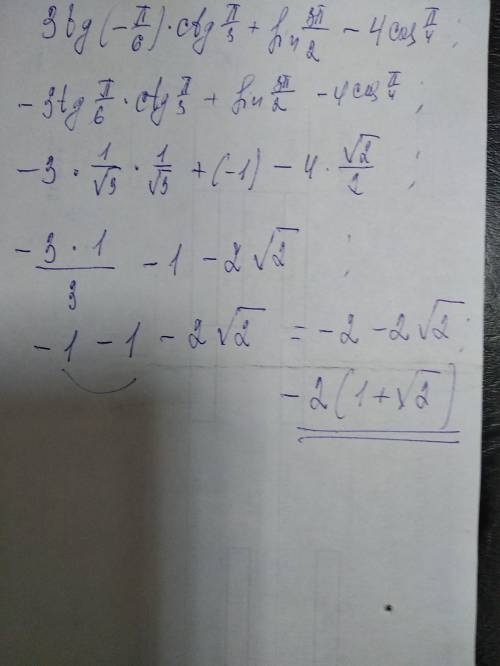 3tg(-π/6)·ctg π/3 + sin 3π/2 - 4cos π/4;
-3tg π/6 · ctg π/3 + sin 3π/2 - 4cos π/4;
-3 · 1/√3 · 1/√3 + (-1) - 4 · √2/2;
-3·1/3 - 1 - 2√2;
-1 - 1 - 2√2 = -2 - 2√2;
-2(1+√2)